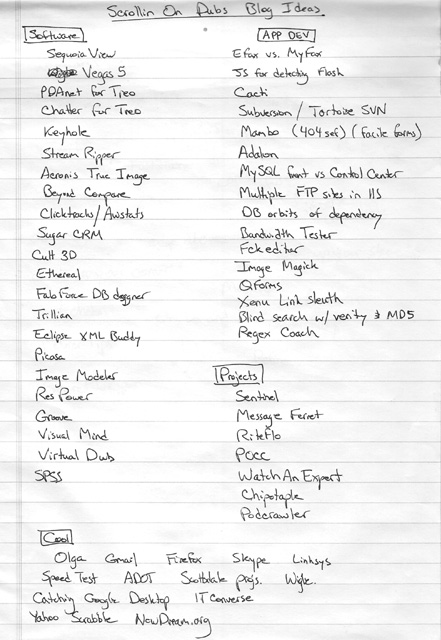 Scrollin On Dubs Blog Ideas
Software
Sequoia View
Vegas 5
PDAnet for Treo
Chatter for Treo
Keyhole
Stream Ripper
Acronis True Image
Beyond Compare
Clicktracks/Awstats
Sugar CRM
Cult 3D
Ethereal
FabForce DB designer
Trillian
Eclipse XML Buddy
Picasa
Image Modeler
Res Power
Groove
Visual Mind
Virtual Dub
SPSS
APP DEV
Efax vs. MyFax
JS for detecting flash
Cacti
Subversion / Tortoise SVN
Mambo (404sef) (facile forms)
Adalon
MySQL front vs Control Center
Multiple FTP sites in IIS
DB orbits of dependency
Bandwidth Tester
Fckeditor
Image Magick
Qforms
Xenu Link sleuth
Blind search w/ verity & MD5
Regex Coach
Projects
Sentinel
Message Ferret
RiteFlo
POCC
WatchAnExpert
Chipotaple
Podcrawler
Cool
Olga Gmail Firefox Skype Linksys
Speed Test ADOT Scottsdale projs.
Catching Google Desktop ITconverse
Yahoo Scrabble NowDream.org